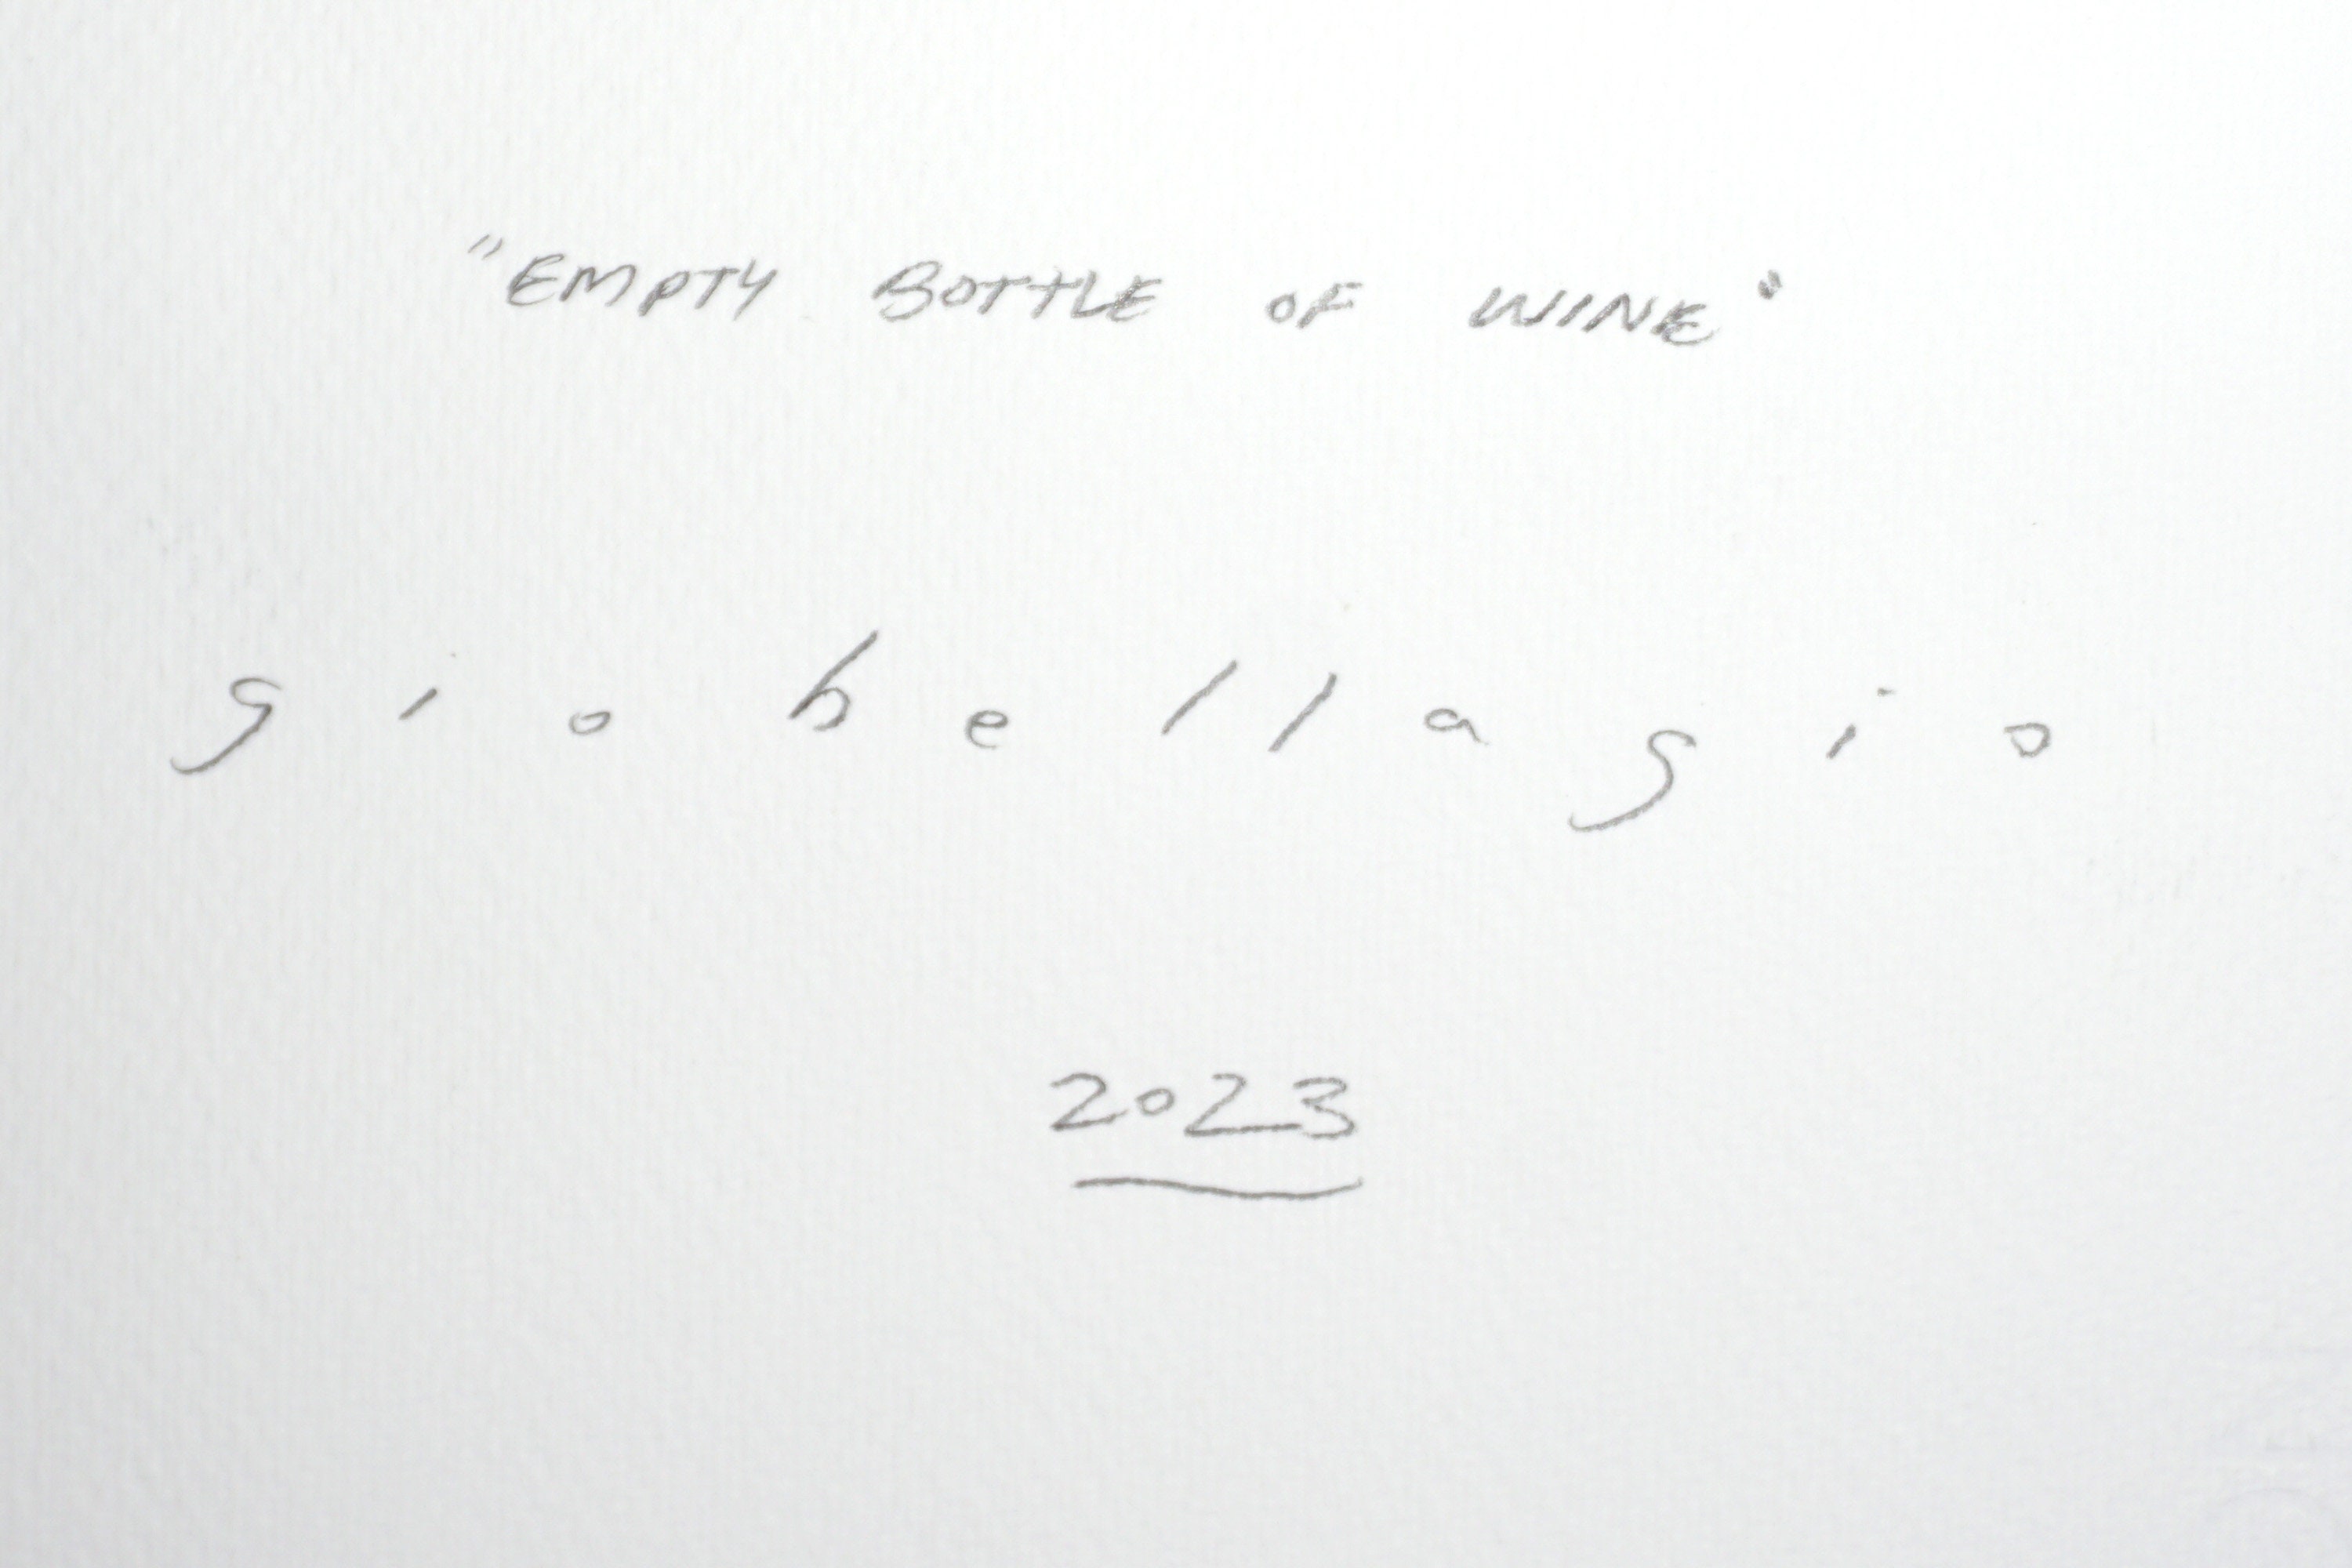 "EMPTY BOTTLE OF WINE"
g i o b e l l a g i o
2023